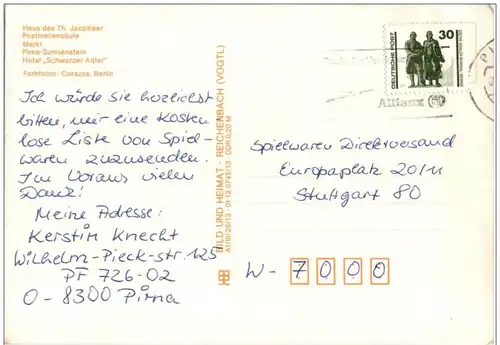 Haus des Th. Jacobaer
Postmeilensäule
Markt
Pirna-Sonnenstein
Hotel „Schwarzer Adler"
Farbfotos: Corazza, Berlin
Ich würde sie herzlichst
bitten, mir eine Kosten
lose Liste von Spiel-
waren zuzusenden.
Im Voraus vielen
Dank!
Meine Adresse:
Kerstin Knecht
Wilhelm-Pieck-str. 125
PF 726-02
O-8300 Pirna
BILD UND HEIMAT · REICHENBACH (VOGTL)
DEUTSCHE POST
30
Allianz
Spielwaren Direktversand
Europaplatz 20/11
Stuttgart 80
W-7000